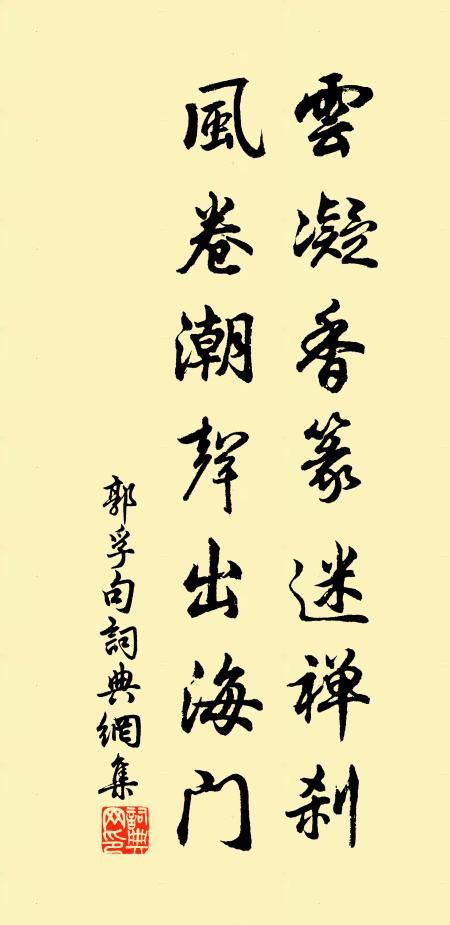 雲凝香篆迷禅刹
風卷潮聲出海门
郭孚句詞典網集
詞典网印